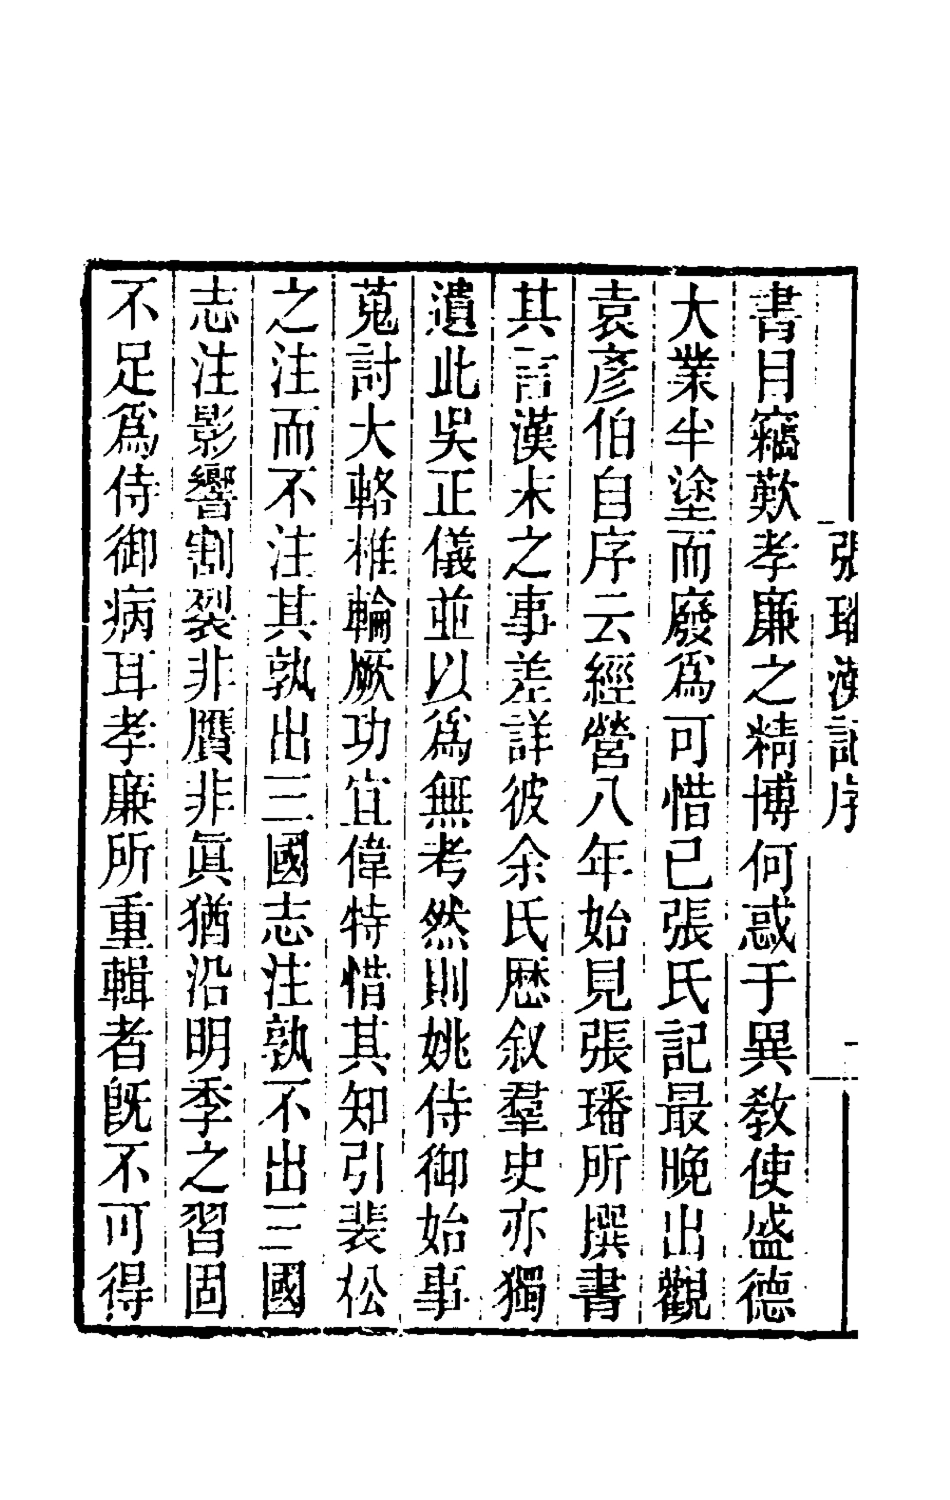 張璠漢記序
一
書目竊歎孝廉之精博何惑于異教使盛德
大業半塗而廢爲可惜已張氏記最晚出觀
袁彥伯自序云經營八年始見張璠所撰書
其言漢末之事差詳彼余氏歷叙羣史亦獨
遺此吳正儀並以爲無考然則姚侍御始事
蒐討大輅椎輪厥功宜偉特惜其知引裴松
之注而不注其孰出三國志注孰不出三國
志注影響割裂非贋非眞猶沿明季之習固
不足爲侍御病耳孝廉所重輯者旣不可得